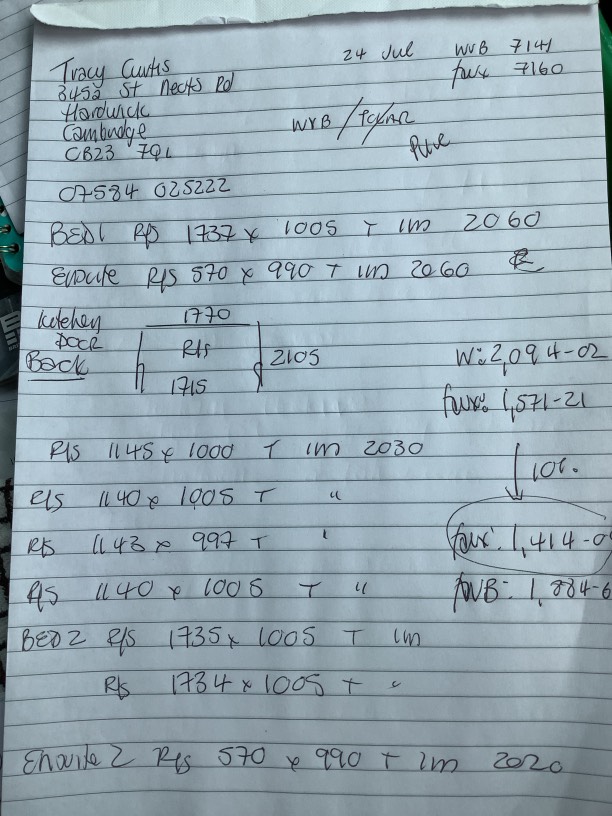 Tracy Curtis
345a St Neots Rd
Hardwick
Cambridge
CB23 7QL
07584 025222
24 Jul WVB 7141
faux 7160
WVB /
BED1 R/S 1737 x 1005 T 1m 2060
Ensuite R/S 570 x 990 T 1m 2060
kitchen
DOOR
Back
1770
R/S 2105
1715
W: 2,094-02
faux: 1,571-21
10%
R/S 1145 x 1000 T 1m 2030
R/S 1140 x 1005 T "
R/S 1143 x 997 T "
faux: 1,414-0
R/S 1140 x 1005 T "
fWB: 1,884-6
BED2 R/S 1735 x 1005 T 1m
R/S 1734 x 1005 T "
Ensuite 2 R/S 570 x 990 T 1m 2020